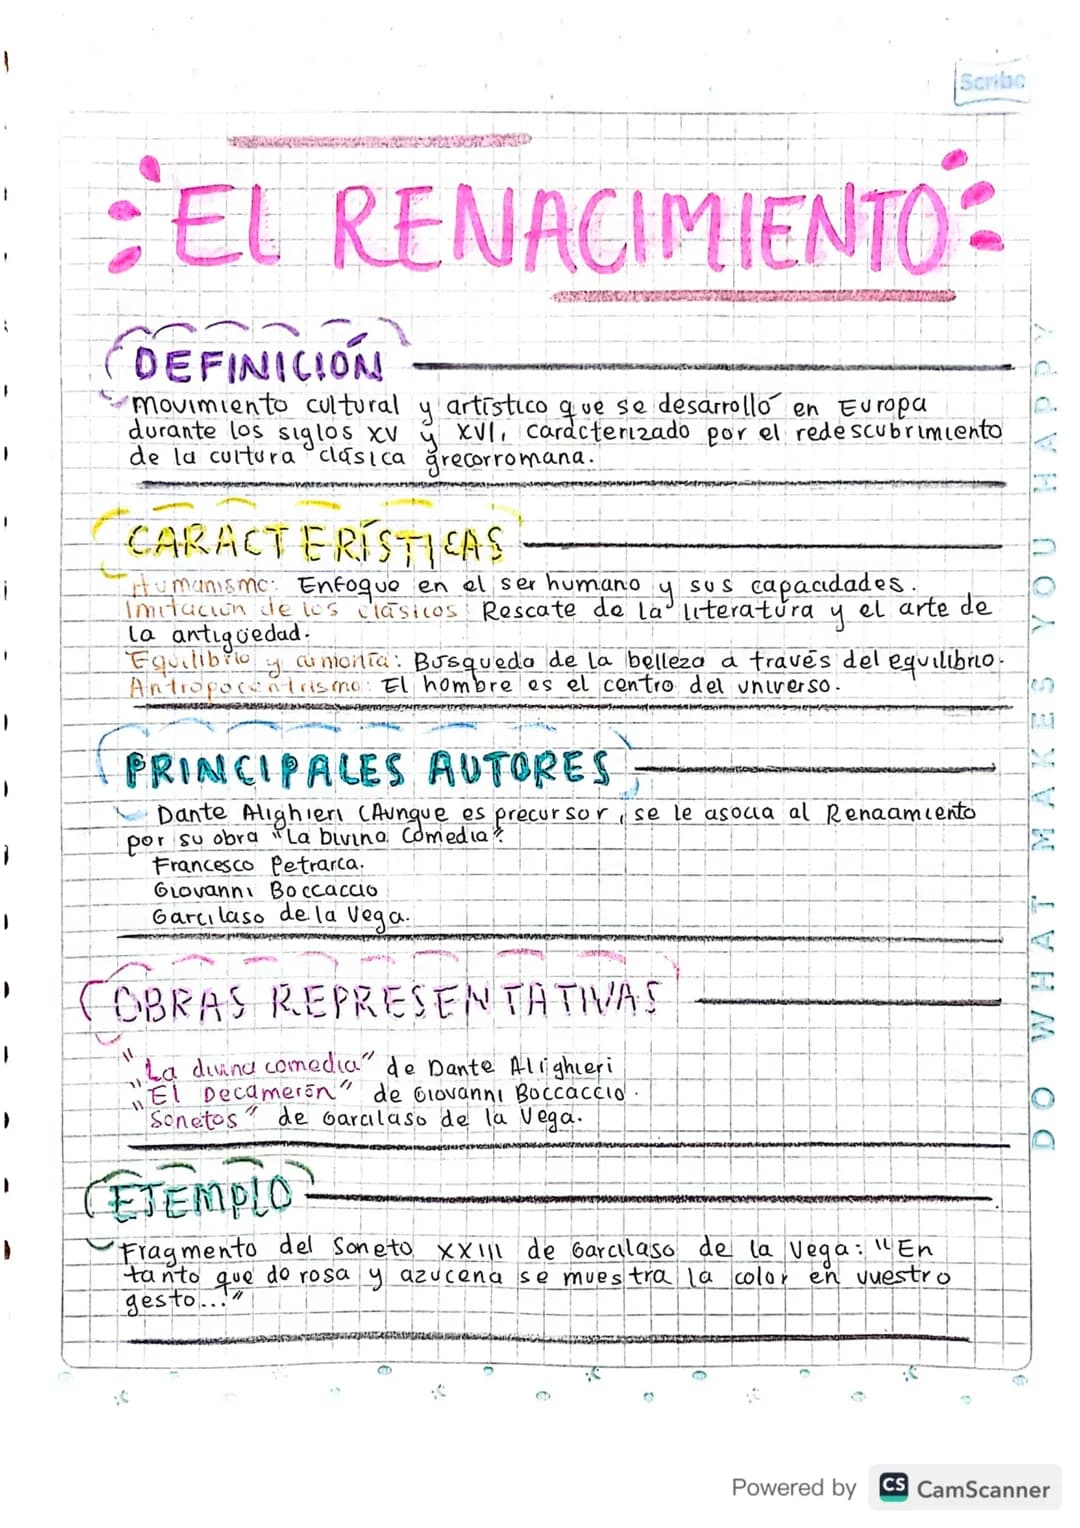 Scribe
EL RENACIMIENTO
DEFINICIÓN
movimiento cultural y artístico que se desarrolló en Europa
durante los siglos XV y XVI, caracterizado por el redescubrimiento
de la cultura clásica grecorromana.
CARACTERÍSTICAS
Humanismo: Enfoque en el ser humano y sus capacidades.
Imitación de los clásicos: Rescate de la literatura y el arte de
la antigüedad.
Equilibrio y armonía: Busqueda de la belleza a través del equilibrio.
Antropocentrismo: El hombre es el centro del universo.
PRINCIPALES AUTORES
Dante Alighieri (Aunque es precursor, se le asocia al Renacimiento
por su obra "La Divina Comedia".
Francesco Petrarca.
Giovanni Boccaccio
Garcilaso de la Vega.
OBRAS REPRESENTATIVAS
"La divina comedia" de Dante Alighieri
"El Decamerón" de Giovanni Boccaccio.
"Sonetos" de Garcilaso de la Vega.
EJEMPLO
Fragmento del Soneto XXIII de Garcilaso de la Vega: "En
tanto que de rosa y azucena se muestra la color en vuestro
gesto..."
DO WHAT MAKES YOU HAPPY
Powered by CS CamScanner